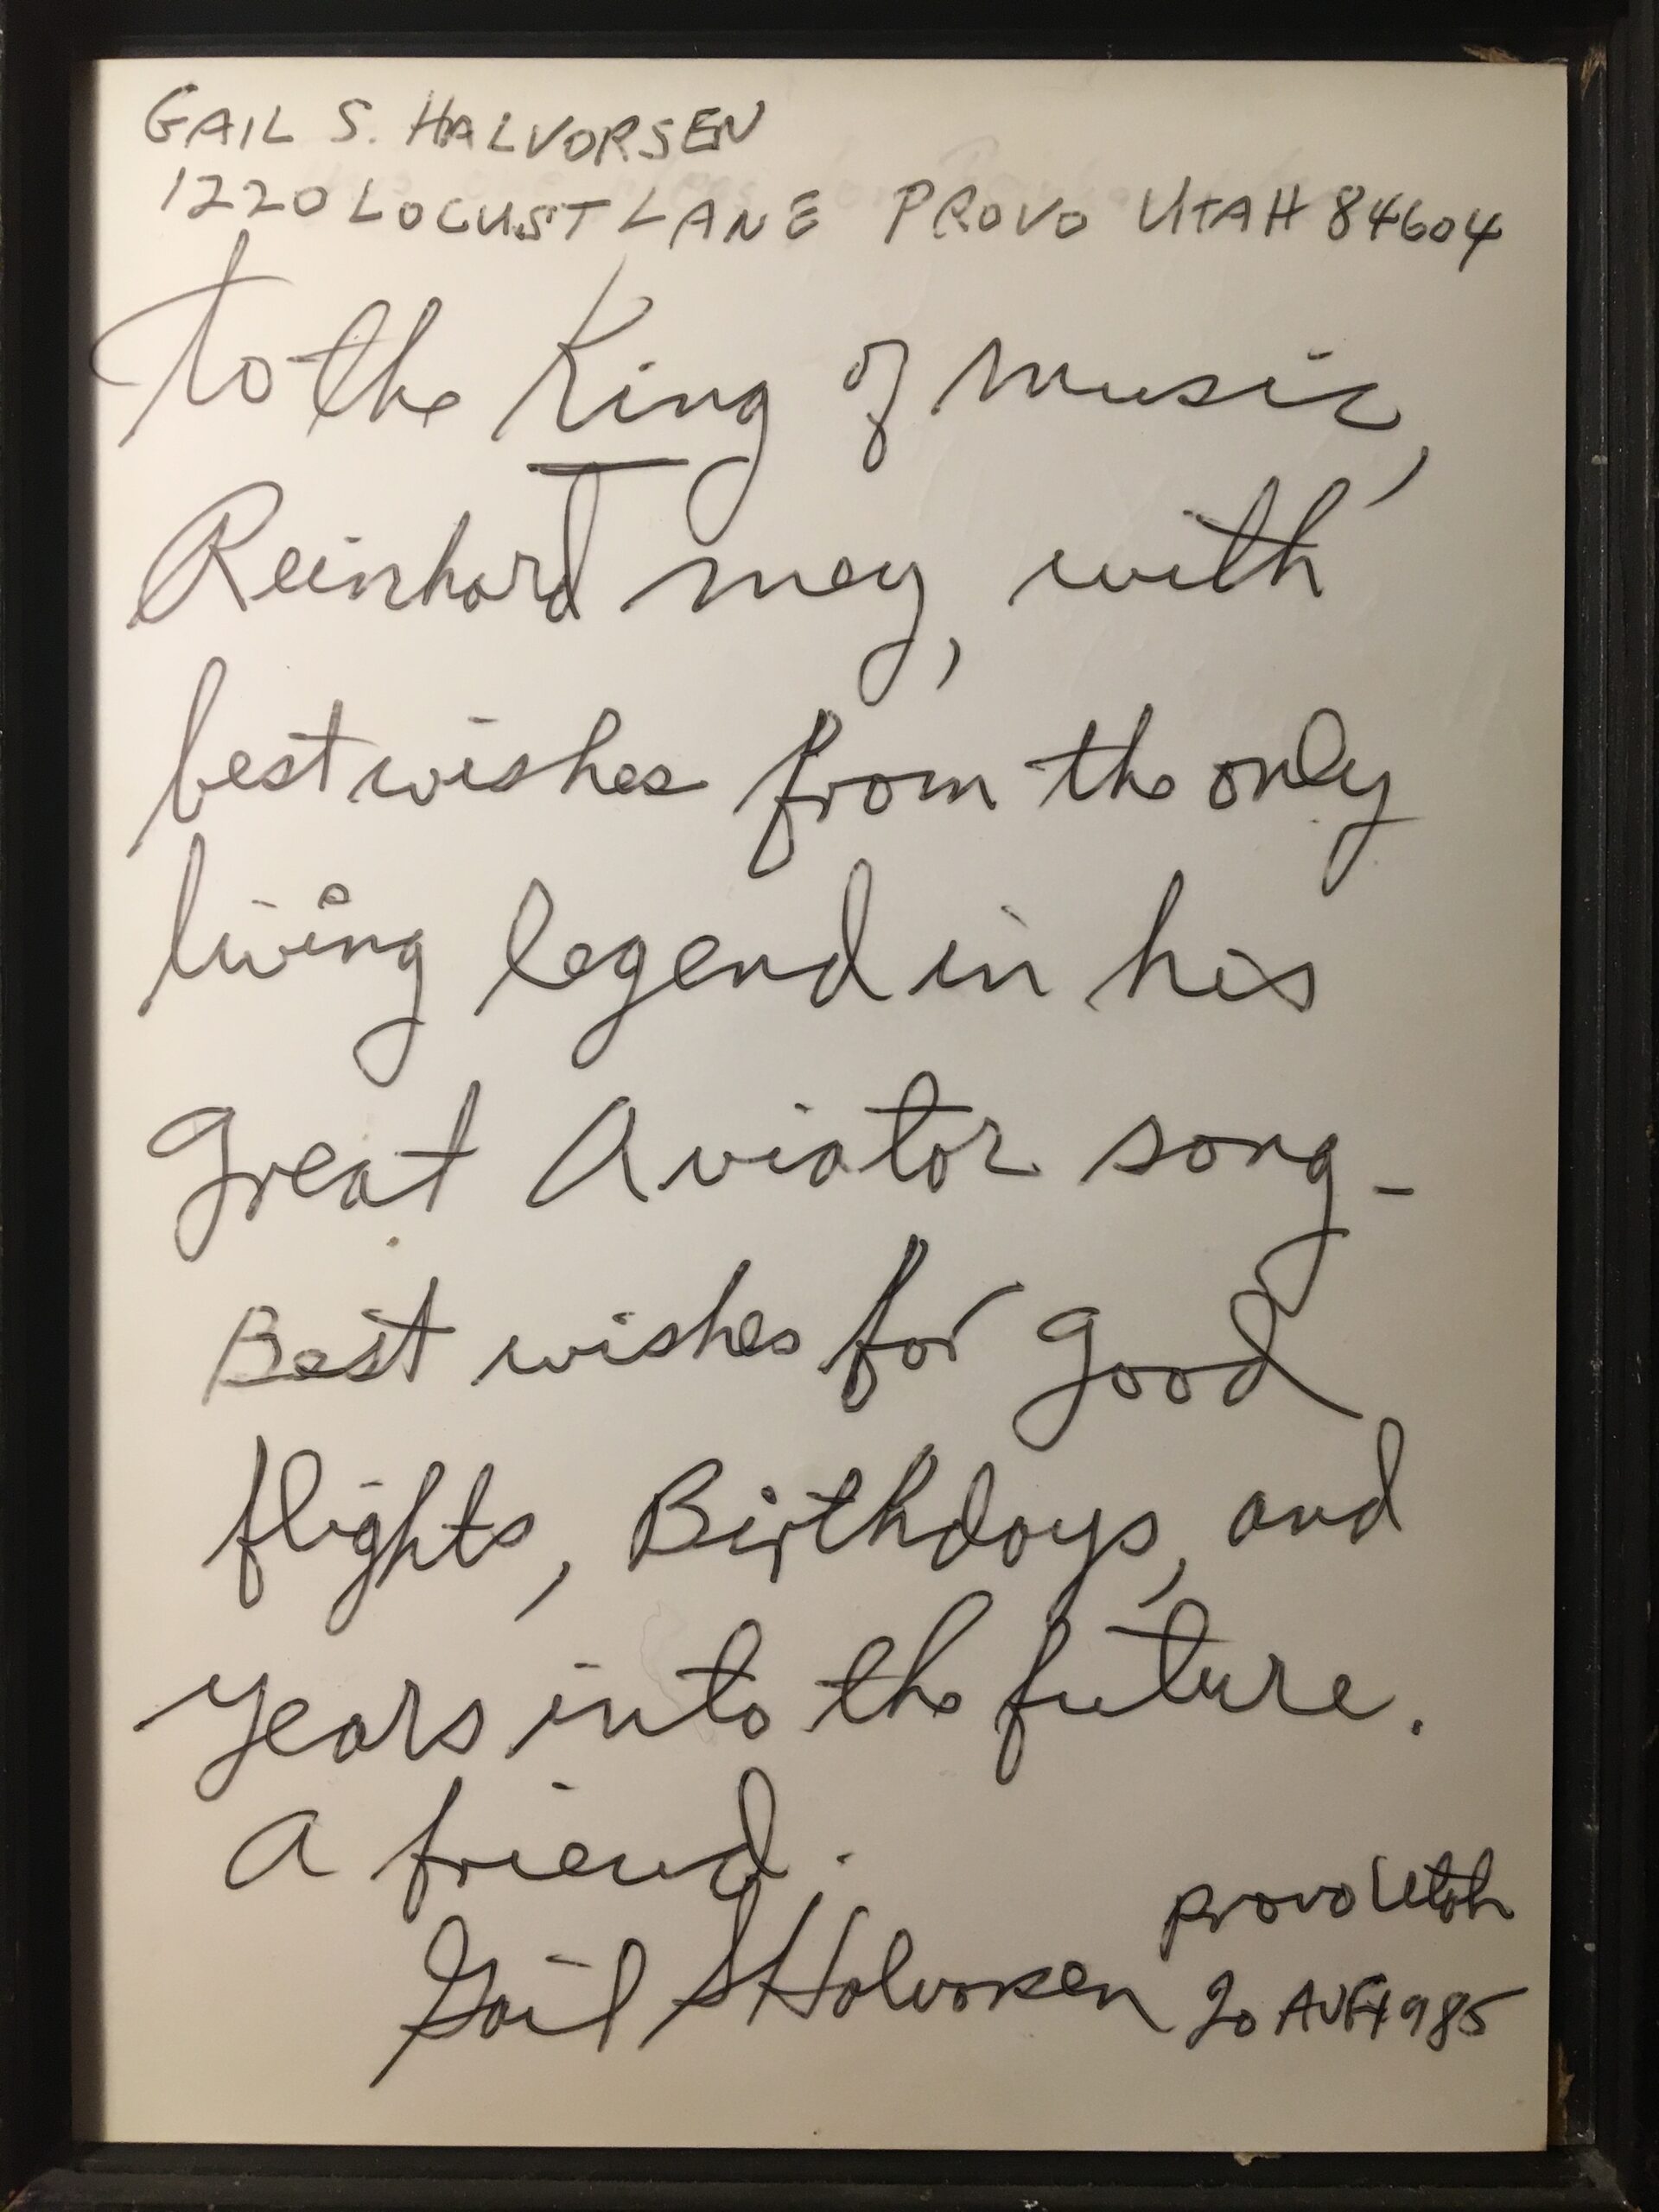 GAIL S. HALVORSEN
1220 LOCUST LANE PROVO UTAH 84604
To the King of music,
Reinhard mey, with
best wishes from the only
living legend in his
great Aviator song -
Best wishes for good
flights, Birthdays, and
years into the future.
A friend.
Provo Utah
Gail S Halvorsen 20 AUG 1985